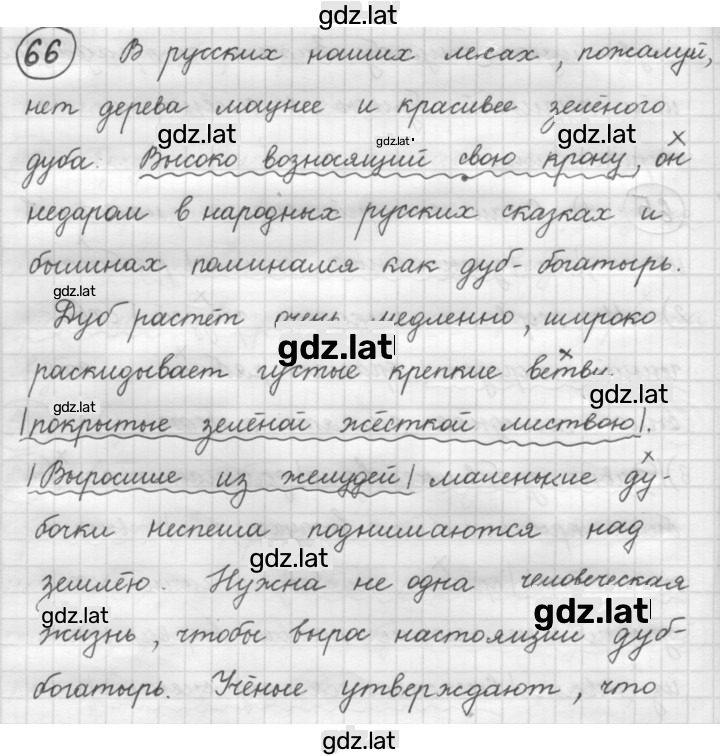 gdz.lat
66 В русских наших лесах, пожалуй,
нет дерева мощнее и красивее зелёного
gdz.lat gdz.lat gdz.lat
дуба. Высоко возносящий свою крону, он
недаром в народных русских сказках и
былинах поминался как дуб-богатырь.
gdz.lat
Дуб растёт очень медленно, широко
gdz.lat
раскидывает густые крепкие ветви,
gdz.lat gdz.lat
|покрытые зелёной жёсткой листвою|.
|Выросшие из желудей| маленькие ду-
бочки неспеша поднимаются над
gdz.lat
землёю. Нужна не одна человеческая
gdz.lat gdz.lat
жизнь, чтобы вырос настоящий дуб-
богатырь. Учёные утверждают, что
gdz.lat